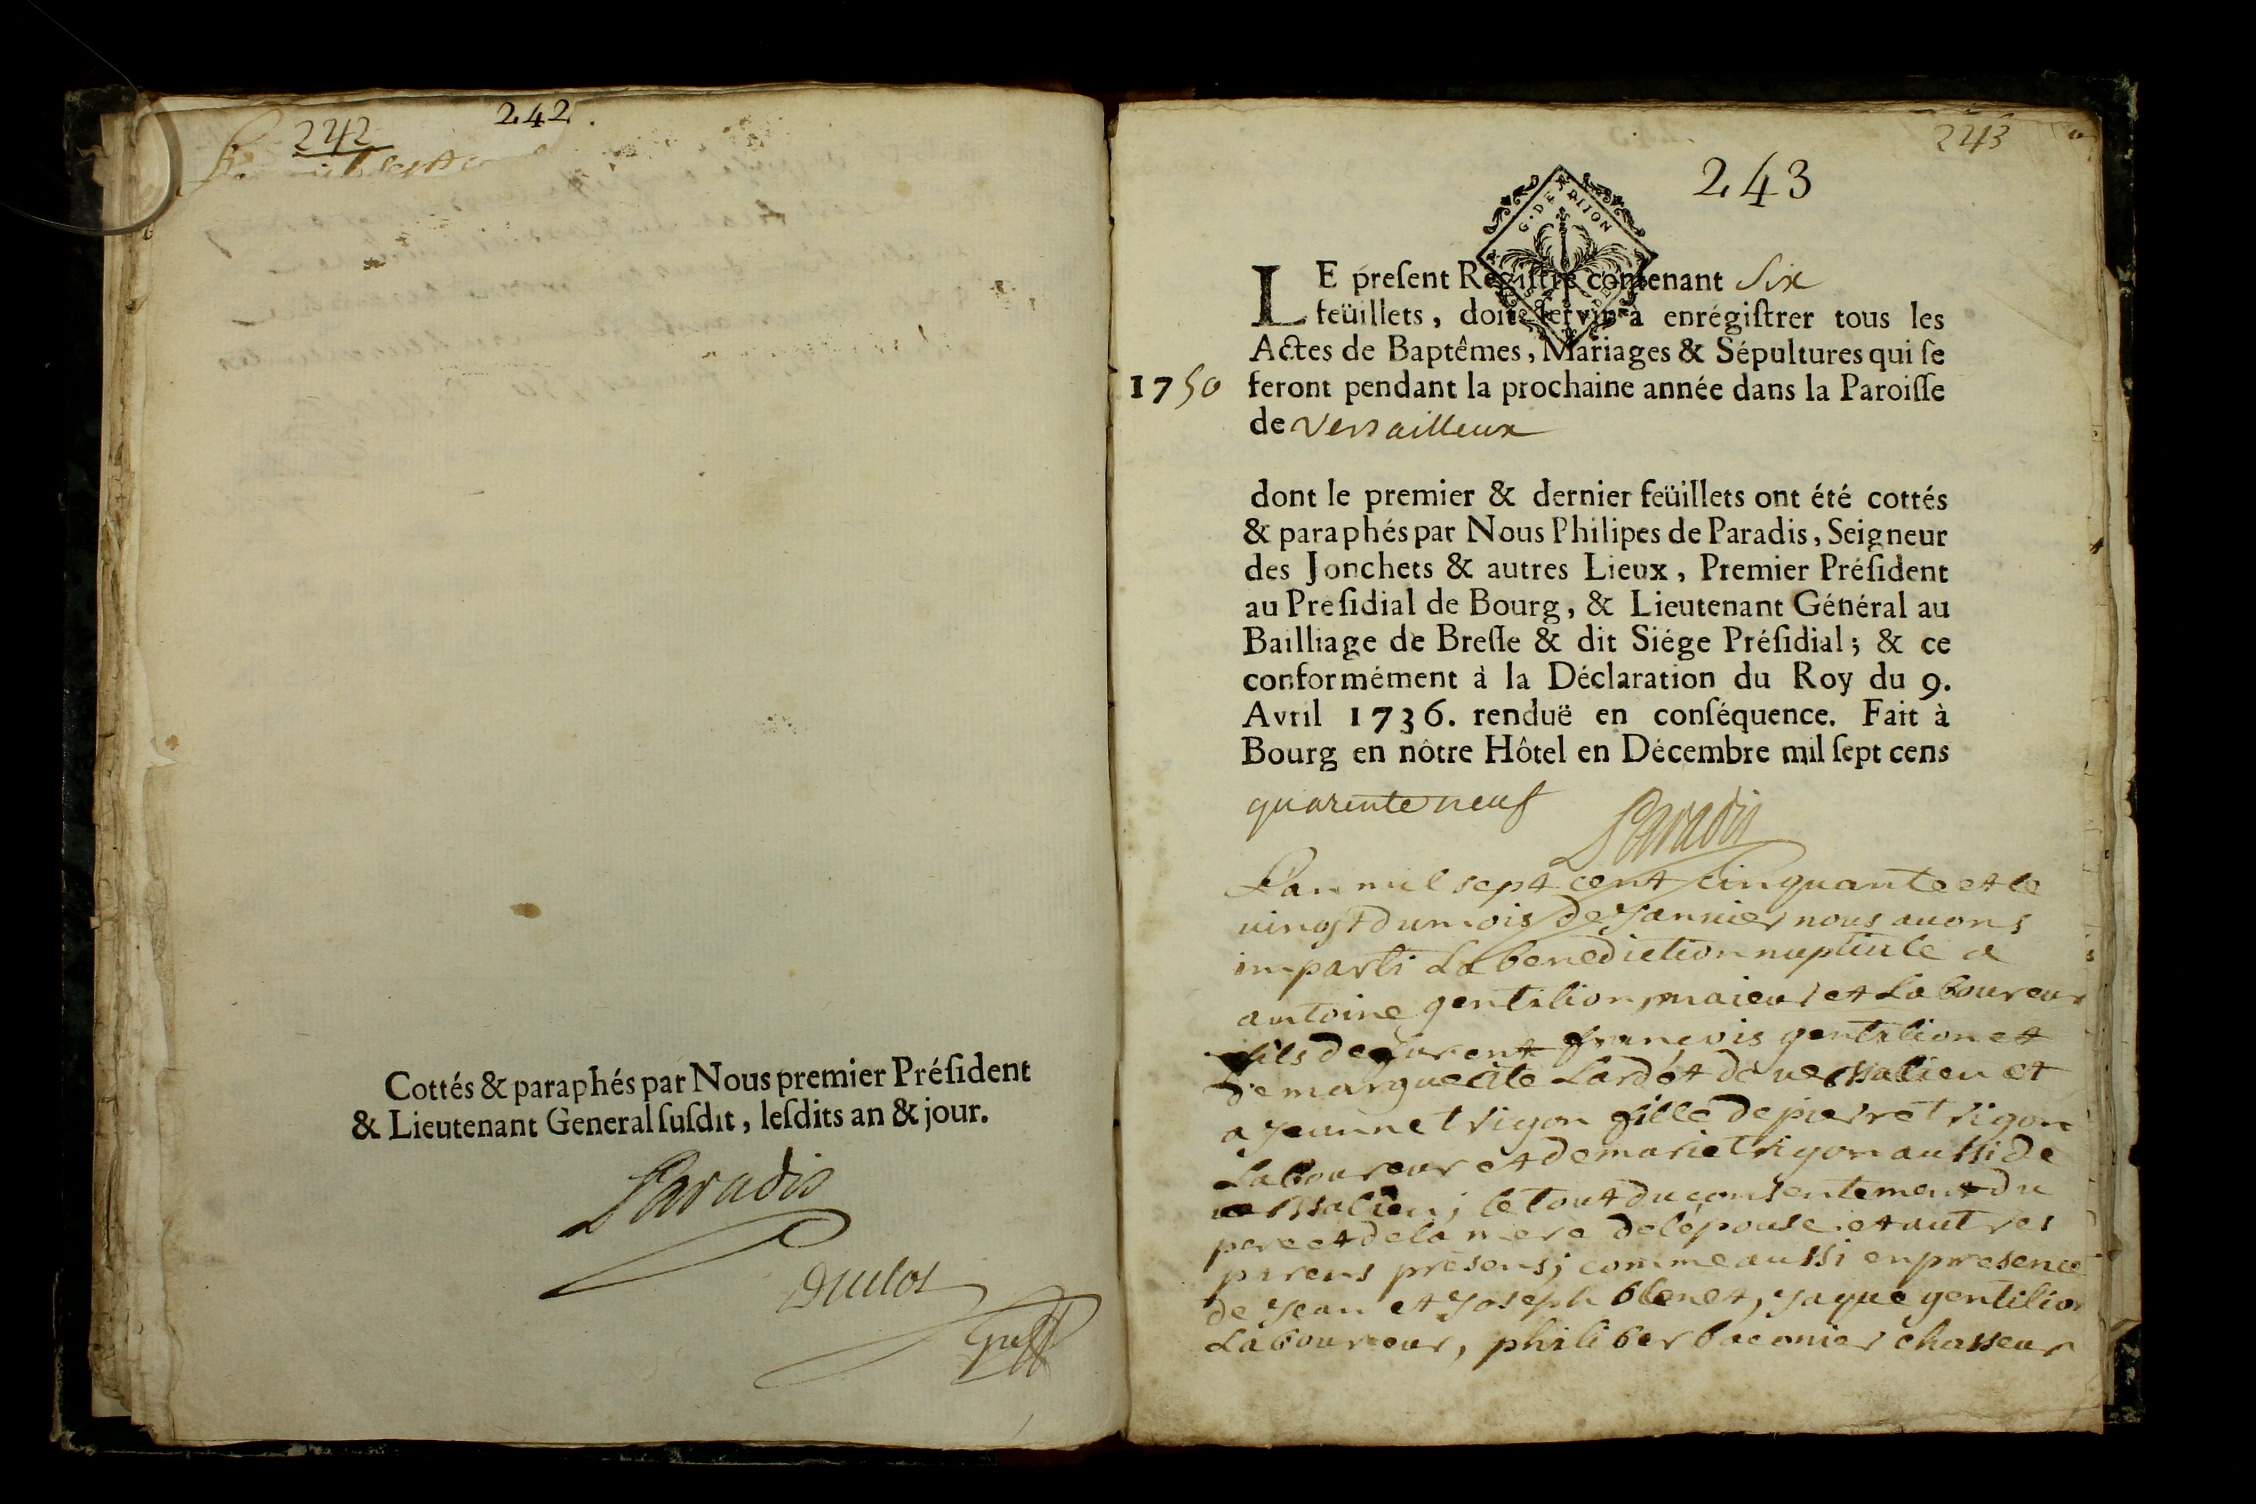 242
242.
Cottés & paraphés par Nous premier Présìdent
& Lieutenant General susdit, lesdits an & jour.
Paradis
Duclos
Greff
243
243
G. DE DIJON
LE present Registre contenant Six
feüillets, doit servir à enrégistrer tous les
Actes de Baptêmes, Mariages & Sépultures qui se
1750 feront pendant la prochaine année dans la Paroisse
de Versailleux
dont le premier & dernier feüillets ont été cottés
& paraphés par Nous Philipes de Paradis, Seigneur
des Jonchets & autres Lieux, Premier Président
au Presidial de Bourg, & Lieutenant Général au
Bailliage de Bresse & dit Siége Présidial; & ce
conformément à la Déclaration du Roy du 9.
Avril 1736. renduë en conséquence. Fait à
Bourg en nôtre Hôtel en Décembre mil sept cens
quarente neuf
Paradis
L'an mil sept cent cinquante et le
vingt du mois de Janvier nous avons
imparti La benediction nuptiale a
antoine gentilion, majeur et Laboureur
fils de françois gentilion et
de marguerite Lardet de versalieu et
a Jeanne trigon fille de pierre trigon
Laboureur et de marie trigon aussi de
versalieu; le tout du consentement du
pere et de la mere de l'épouse et autres
parens présens; comme aussi en presence
de Jean et Joseph blenet, Jaque gentilion
Laboureur, philiber baconier chasseur